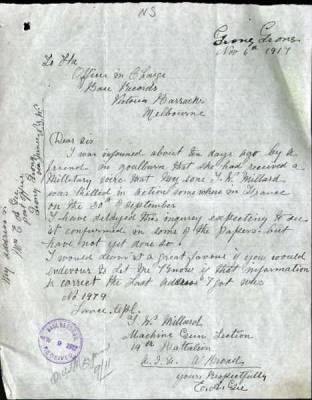 NS
Geong Geong
Nov 6th 1917
To the
Officer in Charge
Base Records
Victoria Barracks
Melbourne
Dear Sir
I was informed about ten days ago by a
friend in goulburn that she had received a
Millitary wire that My sone T. W. Millard
was Killed in action somewhere in France
on the 30th September
I have delayed this inquirey expecting to see
it confirmed in some of the Papers. but
have not yet done so.
I would deem it a great favour if you would
endevour to Let Me Know if that information
is correct the Last address I got was
No 1979
Lance Cpl.
T. W. Millard
Machine Gun Section
19th Battalion
A.I.F. Abroad
yours Respectfully
E. A. Gee
My address is
Mrs E. A. Gee
Post Office
Geong Geong
BASE RECORDS
9
9/11